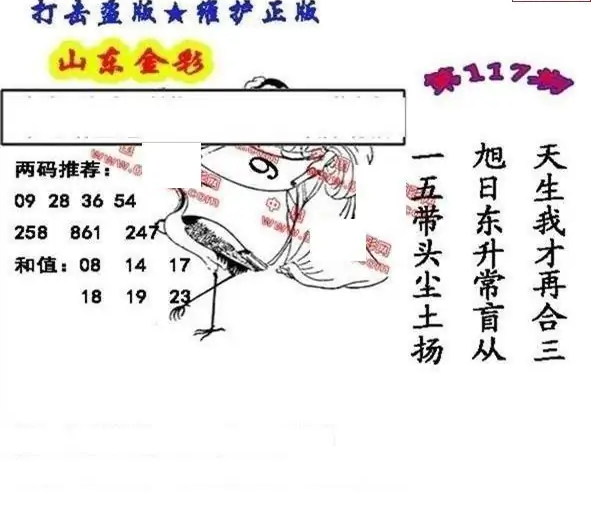 打击盗版★维护正版
山东金彩
第117期
两码推荐：
09 28 36 54
258 861 247
和值：08 14 17
18 19 23
9
天生我才再合三
旭日东升常盲从
一五带头尘土扬